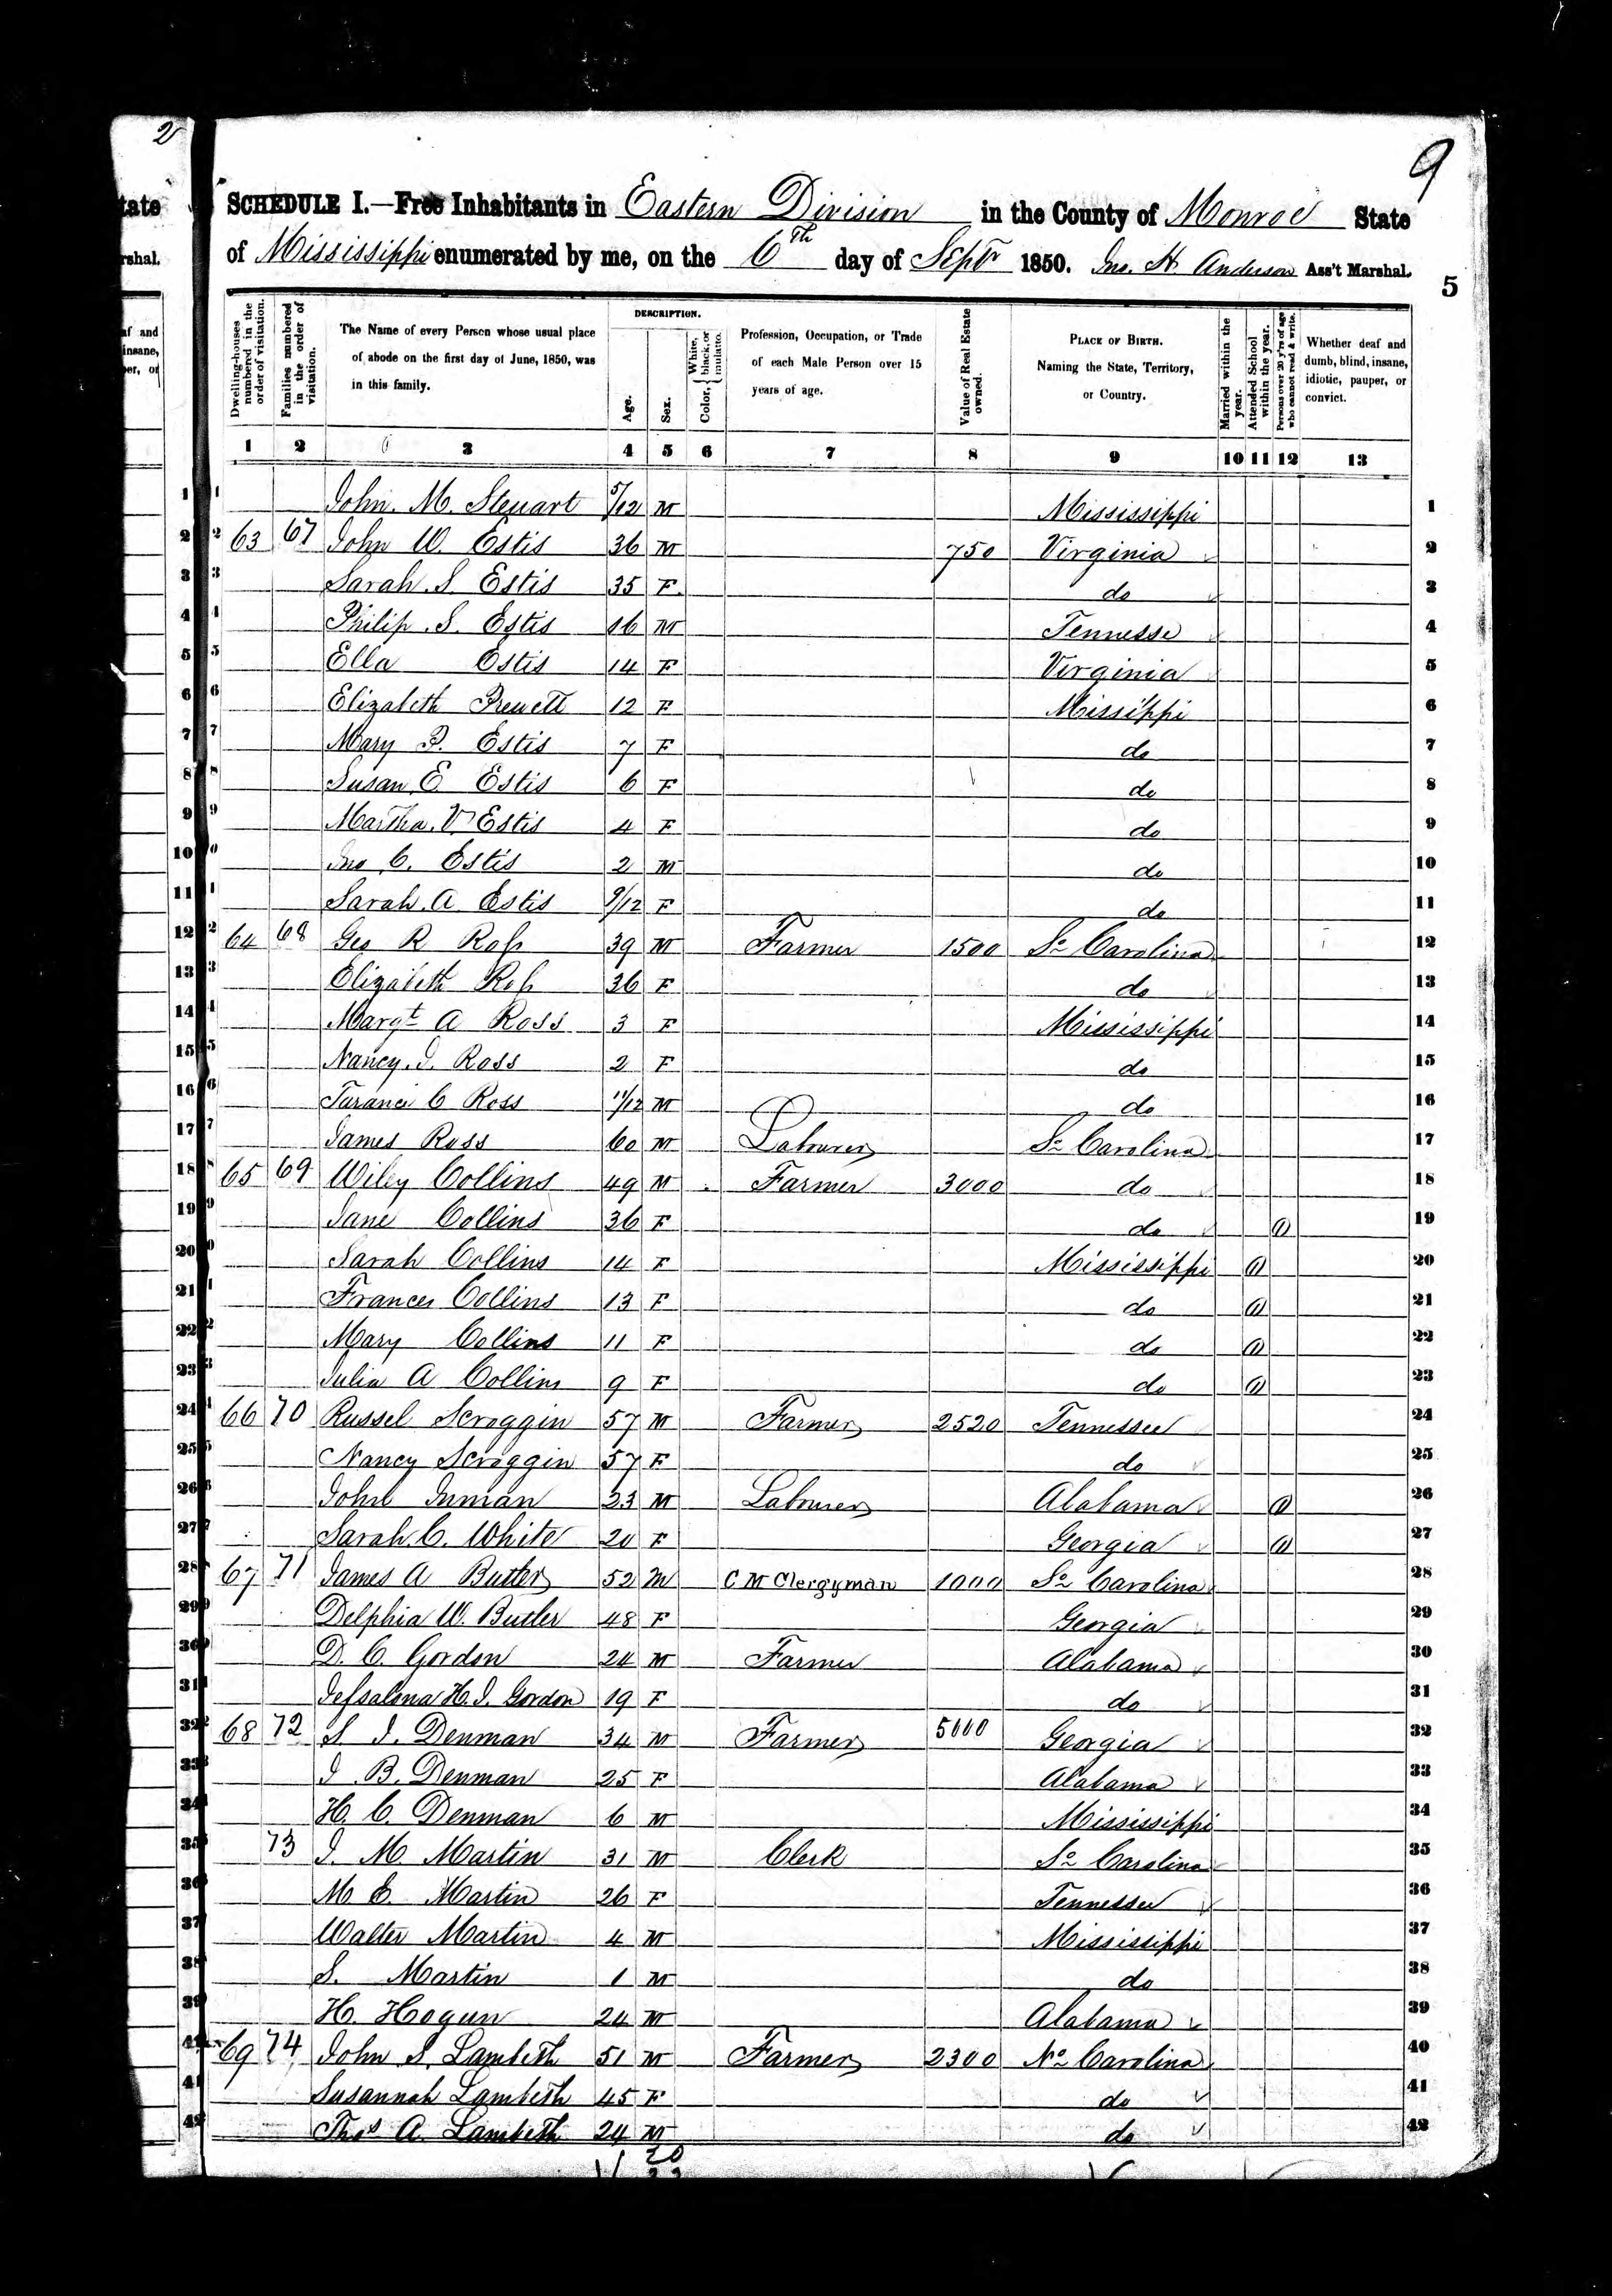 2
9
tate
SCHEDULE I.—Free Inhabitants in Eastern Division in the County of Monroe State
rshal.
of Mississippi enumerated by me, on the 6th day of Sept 1850. Jno. H. Anderson Ass't Marshal.
5
Dwelling-houses numbered in the order of visitation.
Families numbered in the order of visitation.
The Name of every Person whose usual place of abode on the first day of June, 1850, was in this family.
DESCRIPTION.
Age.
Sex.
Color, White, black, or mulatto.
Profession, Occupation, or Trade of each Male Person over 15 years of age.
Value of Real Estate owned.
PLACE OF BIRTH. Naming the State, Territory, or Country.
Married within the year.
Attended School within the year.
Persons over 20 y'rs of age who cannot read & write.
Whether deaf and dumb, blind, insane, idiotic, pauper, or convict.
1 2 3 4 5 6 7 8 9 10 11 12 13
1 John. M. Steuart 5/12 M Mississippi 1
2 63 67 John W. Estis 36 M 750 Virginia 2
3 Sarah. S. Estis 35 F do 3
4 Philip. S. Estis 16 M Tennesse 4
5 Ella Estis 14 F Virginia 5
6 Elizabeth Prewett 12 F Missippi 6
7 Mary P. Estis 7 F do 7
8 Susan E Estis 6 F do 8
9 Martha. V. Estis 4 F do 9
10 Jno C. Estis 2 M do 10
11 Sarah. A Estis 9/12 F do 11
12 64 68 Geo R Ross 39 M Farmer 1500 So Carolina 12
13 Elizabeth Ross 36 F do 13
14 Margt A Ross 3 F Mississippi 14
15 Nancy. J. Ross 2 F do 15
16 C Ross 11/12 M do 16
17 James Ross 60 M Labourer So Carolina 17
18 65 69 Wiley Collins 49 M Farmer 3000 do 18
19 Jane Collins 36 F do 1 19
20 Sarah Collins 14 F Mississippi 1 20
21 Frances Collins 13 F do 1 21
22 Mary Collins 11 F do 1 22
23 Julia A Collins 9 F do 1 23
24 66 70 Russel Scroggin 57 M Farmer 2520 Tennessee 24
25 Nancy Scroggin 57 F do 25
26 John Inman 23 M Labourer Alabama 1 26
27 Sarah. C. White 20 F Georgia 1 27
28 67 71 James A Butler 52 M C M Clergyman 1000 So Carolina 28
29 Delphia W. Butler 48 F Georgia 29
30 D. C. Gordon 24 M Farmer Alabama 30
31 H. J. Gordon 19 F do 31
32 68 72 S J. Denman 34 M Farmer 5000 Georgia 32
33 J B. Denman 25 F Alabama 33
34 H. C. Denman 6 M Mississippi 34
35 73 J. M Martin 31 M Clerk So Carolina 35
36 M E. Martin 26 F Tennessee 36
37 Walter Martin 4 M Mississippi 37
38 S. Martin 1 M do 38
39 H. Hogun 24 M Alabama 39
40 69 74 John S. Lambeth 51 M Farmer 2300 No Carolina 40
41 Susannah Lambeth 45 F do 41
42 Thos A. Lambeth 24 M do 42
20